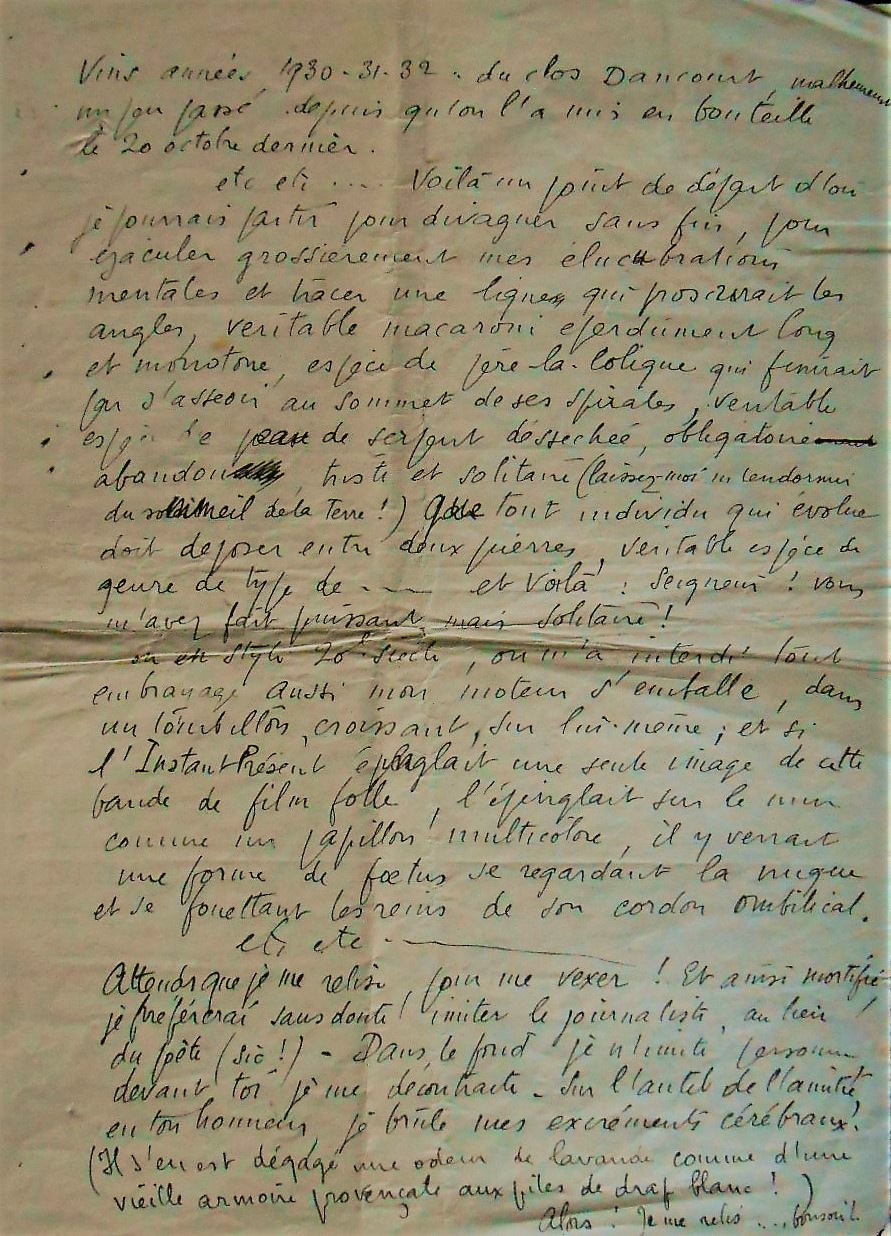 Vins années 1930-31-32. du clos Dancourt, malheureus
un peu passé depuis qu'on l'a mis en bouteille
le 20 octobre dernier.
etc etc .... Voilà un point de départ d'où
je pourrais partir pour divaguer sans fin, pour
éjaculer grossièrement mes élucubrations
mentales et tracer une ligne qui proscrirait les
angles, veritable macaroni éperdument long
et monotone, espèce de père-la-Colique qui finirait
par s'asseoir au sommet de ses spirales, veritable
espèce de peau de serpent dessechée, obligatoire
abandon, triste et solitaire (laissez-moi m'endormir
du sommeil de la Terre!) Que tout individu qui évolue
doit déposer entre deux pierres, véritable espèce de
genre de type de ---- et Voilà : Seigneur! vous
m'avez fait puissant mais solitaire!
ou en style 20e siècle, on m'a interdit tout
embrayage aussi mon moteur s'emballe, dans
un tourbillon croissant, sur lui-même ; et si
l'Instant Présent épinglait une seule image de cette
bande de film folle, l'épinglait sur le mur
comme un papillon multicolore, il y verrait
une forme de fœtus se regardant la nuque
et se fouettant les reins de son cordon ombilical.
etc etc -----
Attends que je me relise, pour me vexer! Et ainsi mortifié
je préférerai sans doute imiter le journaliste, au lieu
du poète (sic!) - Dans le fond je n'imite personne
devant toi je me décontracte - Sur l'autel de l'amitié,
en ton honneur, je brûle mes excréments cérébraux!
(Il s'en est dégagé une odeur de lavande comme d'une
vieille armoire provençale aux piles de drap blanc!)
Alors! Je me relis ..., bonsoir!